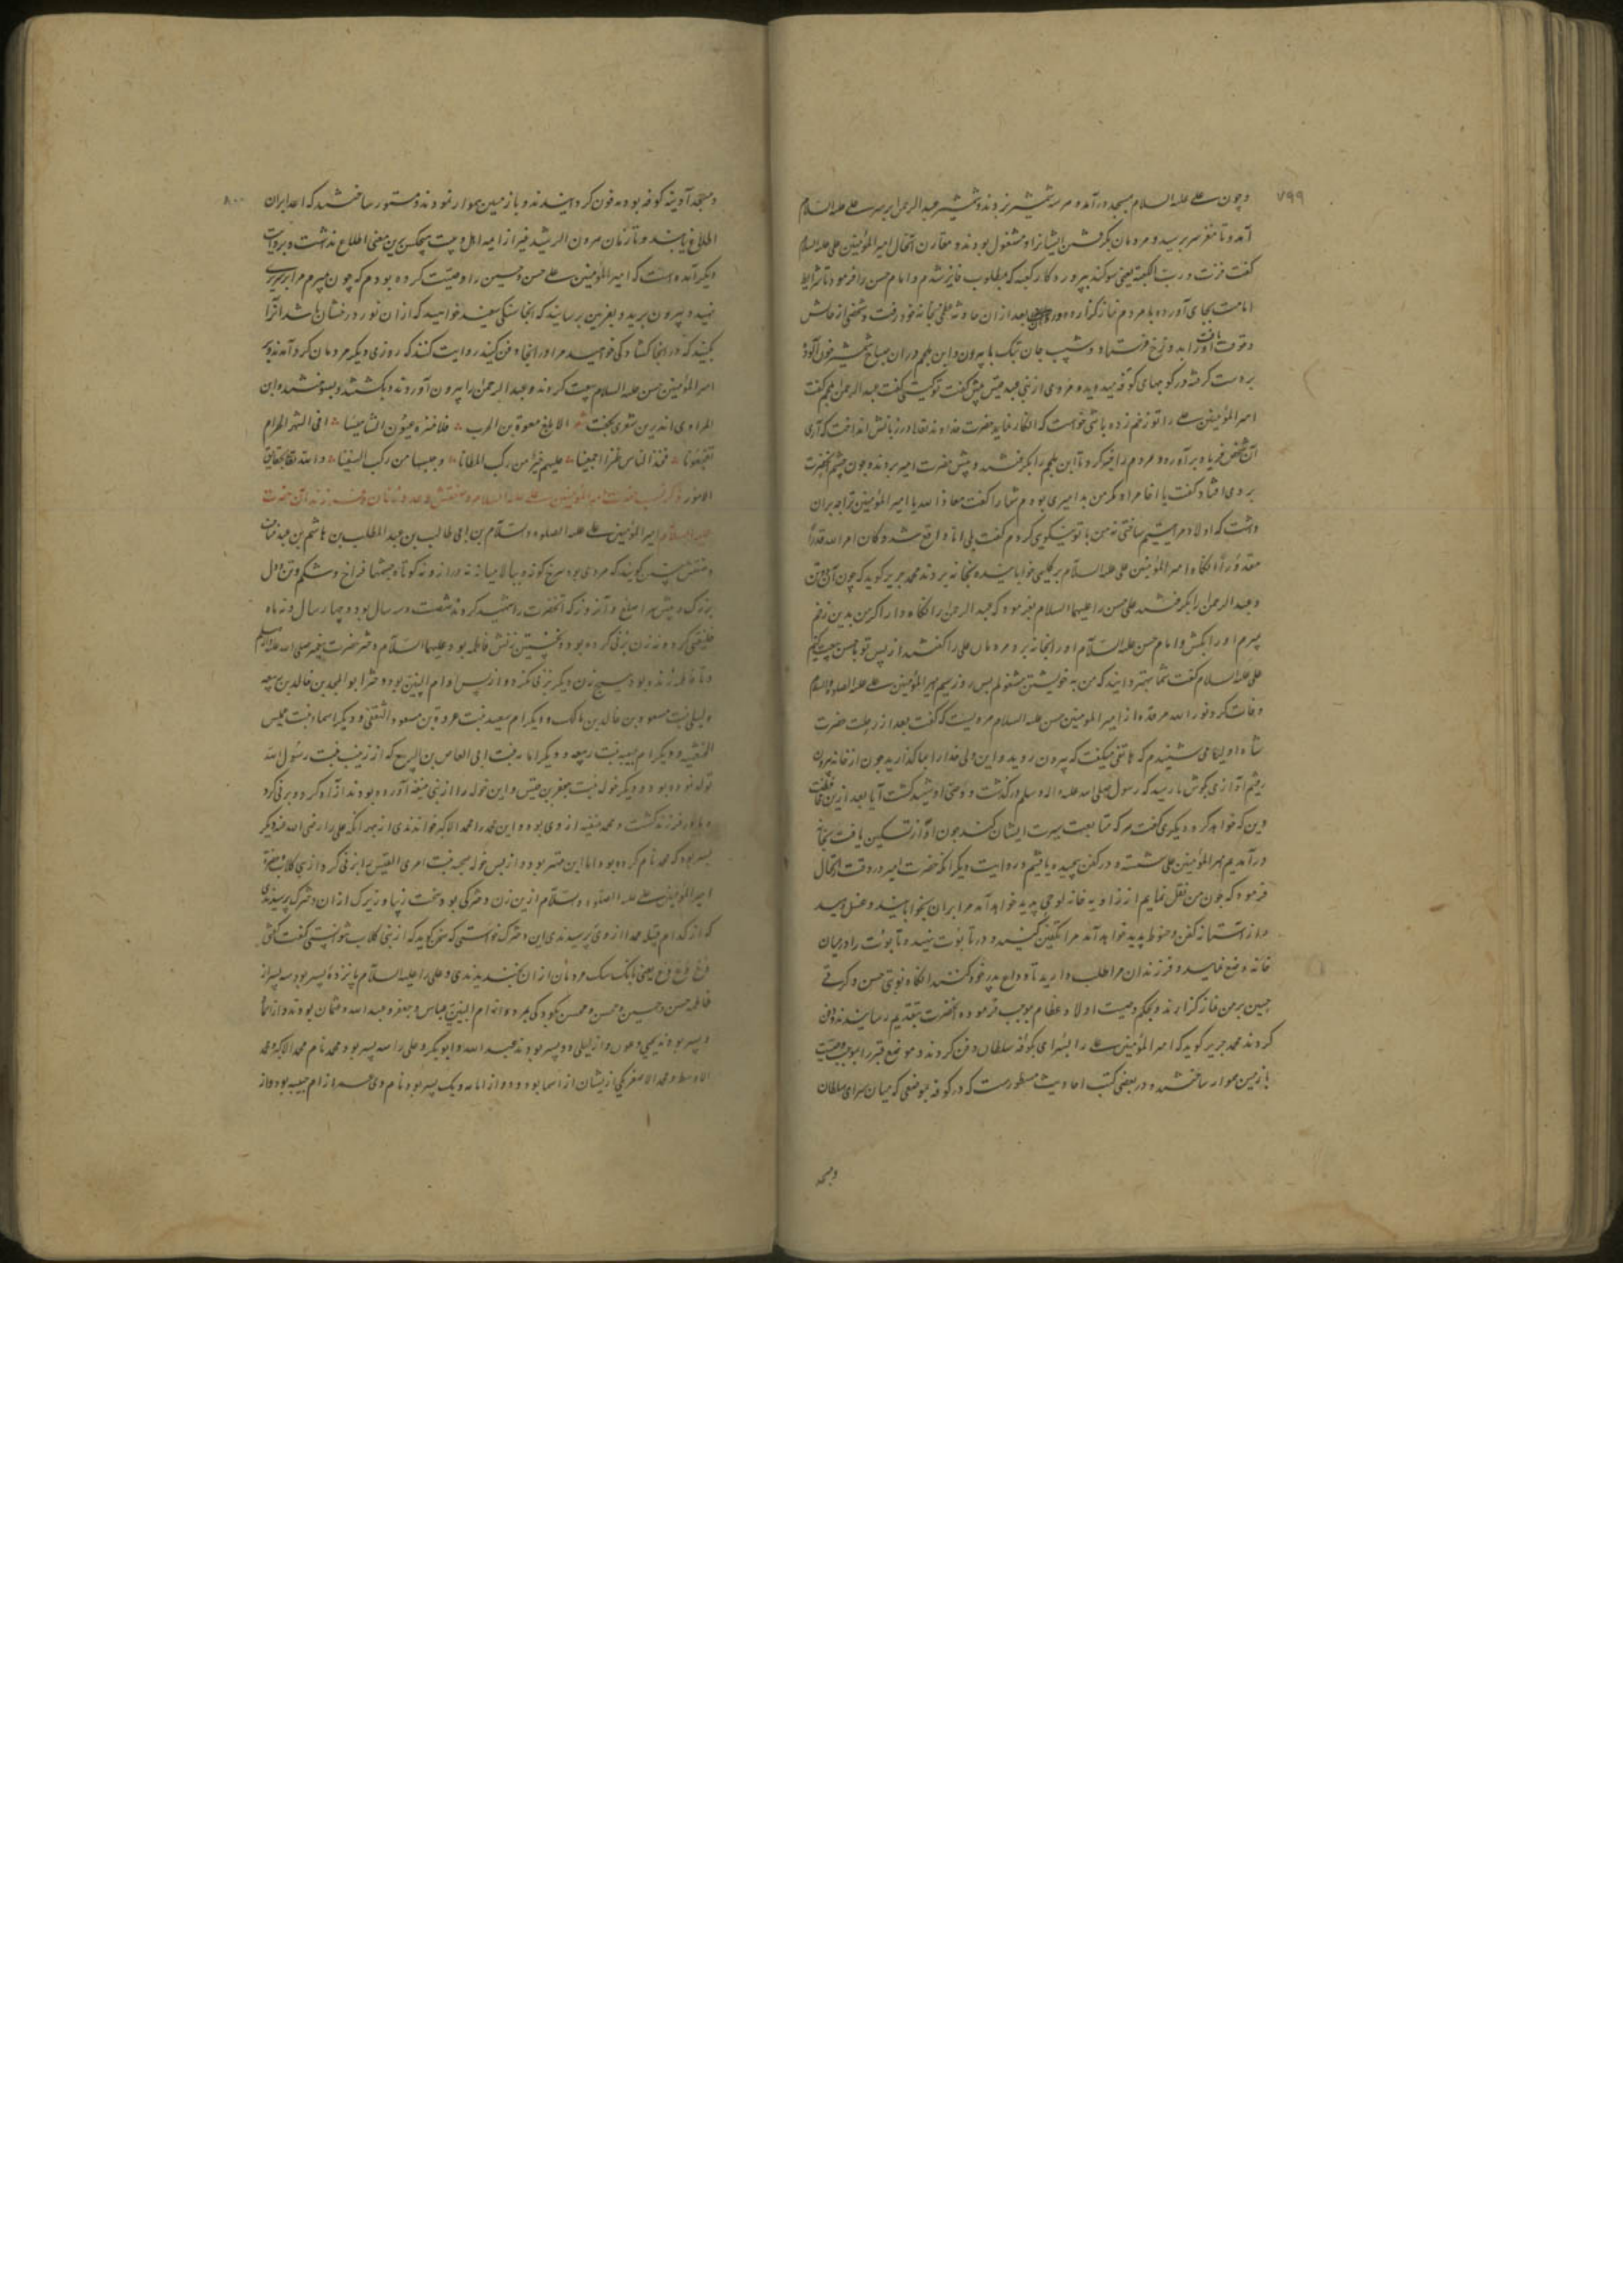 ۷۹۹
و چون علی علیه السلام بمسجد درآمد و هر سه شمشیر بزدند و شمشیر عبدالرحمن بر سر علی علیه السلام
آمد و تا مغز سر برسید و مردمان بگرفتن ایشان مشغول بودند و مقارن آنحال امیرالمؤمنین علی علیه السلام
گفت فزت و رب الکعبه یعنی سوکند بپروردکار کعبه که بمطلوب فایز شدم و امام حسن را فرمود تا شرایط
امامت بجای آورده با مردم نماز کزارد بعد از آن حادثه بخانه خود رفت و شخصی از
بدوزخ فرستاد و شبیب جان بتک پا بیرون و ابن ملجم در آن صباح شمشیر خون آلود
بدست کرفته در کوچهای کوفه میدوید و مردی از بنی عبد قیس پیش گفت تو کیستی گفت عبدالرحمن ملجم گفت
امیرالمؤمنین علی را تو زخم زده باشی خواست که انکار نماید حضرت خداوند تعالی در زبانش انداخت که آری
آن شخص فریاد برآورد و مردم را خبر کرد تا ابن ملجم را بکرفتند و پیش حضرت امیر بردند و چون چشم آنحضرت
بر وی افتاد گفت یا اخا مراد مکر من بد امیری بودم شما را گفت معاذ الله یا امیرالمؤمنین ترا چه بر آن
داشت که اولاد مرا یتیم ساختی نه من با تو نیکویی کردم گفت بلی اما واقع شد و کان امر الله قدرا
مقدورا آنکاه امیرالمؤمنین علی علیه السلام بر کلیمی خوابانیده بخانه بردند محمد جریر کوید که چون
و عبدالرحمن را بکرفتند علی حسن را علیهما السلام بفرمود که عبدالرحمن را نکاه دار اکر من بدین زخم
بمیرم او را بکش و امام حسن علیه السلام او را بخانه برد و مردمان علی را گفتند از پس تو با حسن بیعت کنیم
علی علیه السلام گفت شما بهتر دانید که من به خویشتن مشغولم پس روز سیم امیرالمؤمنین علی علیه الصلوة و السلام
وفات کرد نور الله مرقده از امیرالمؤمنین حسن علیه السلام مرویست که گفت بعد از رحلت حضرت
شاه اولیا می شنیدم که هاتفی میکفت که بیرون روید و این ولی خدا را بما کذارید چون از خانه بیرون
رفتیم آوازی بکوش ما رسید که رسول صلی الله علیه و اله و سلم درکذشت و وصی او شهید کشت آیا بعد ازین
دین که خواهد کرد دیکری گفت هر که متابعت سیرت ایشان کند چون آواز تسکین یافت بخانه
درآمدیم امیرالمؤمنین علی شسته و در کفن پیچیده یافتیم و در روایت دیکر آنکه حضرت امیر در وقت ارتحال
فرمود که چون من نقل نمایم از زاویه خانه لوحی پدید خواهد آمد مرا بر آن بخوابانید و غسل دهید
کفن و حنوط پدید خواهد آمد مرا تکفین کنید و در تابوت نهید و تابوت را در میان
خانه وضع نمایید و فرزندان مرا طلب دارید تا وداع پدر خود کنند آنکاه نوبتی حسن و کرتی
حسین بر من نماز کزارند و بحکم وصیت اولاد عظام بموجب فرموده آنحضرت بتقدیم رسانیدند دفن
کردند محمد جریر کوید که امیرالمؤمنین علی را بسرای بکوفه سلطان دفن کردند و موضع قبر را بموجب وصیت
با زمین هموار ساختند و در بعضی کتب احادیث مسطورست که در کوفه بموضعی که میان سرای سلطان
و مسجد
۸۰۰
و مسجد آدینه کوفه بود مدفون کردانیدند و با زمین هموار نمودند و مستور ساختند که اعدا بر آن
اطلاع نیابند و تا زمان هرون الرشید غیر از ایمه اهل بیت هیچکس برین معنی اطلاع نداشت و بروایت
دیکر آمده است که امیرالمؤمنین علی حسن و حسین را وصیت کرده بودم که چون بمیرم مرا بر سریری
نهید و بیرون برید و بغرین برسانید که آنجا سنکی سفید خواهید که از آن نور درخشان باشد آنرا
بکنید که در آنجا کشادکی خواهید مرا در آنجا دفن کنید روایت کنند که روزی دیکر مردمان کرد آمدند و
امیرالمؤمنین حسن علیه السلام بیعت کردند و عبدالرحمن را بیرون آوردند و بکشتند و بسوختند و ابن
المرادی اندرین شعری بکفت الا بلغ معویة بن الحرب فلا قرت عیون الشامیتنا افی الشهر الحرام
فجعتمونا الناس طرا اجمعینا علیهم خیر من رکب المطایا و من رکب السفینا و الله تعالی بحقایق
الامور ذکر نسب حضرت امیرالمؤمنین علی علیه السلام و صفتش و عدد زنان و فرزندان حضرت
علیه السلام امیرالمؤمنین علی علیه الصلوة و السلام بن ابی طالب بن عبدالمطلب بن هاشم بن عبد مناف
و صفتش چنین کویند که مردی بود سرخ کونه و ببالا میانه نه دراز و نه کوتاه چشمها فراخ و شکم و تن و دل
بزرک و ریش و آنروز که آنحضرت را شهید کردند شصت و سه سال بود و چهار سال و نه ماه
خلیفتی کرد و نه زن بزنی کرده بود و نخستین زنش فاطمه بود علیها السلام دختر حضرت پیغمبر صلی الله علیه و سلم
و تا فاطمه زنده بود هیچ زن دیکر بزنی نکرد و از پس او ام البنین بود دختر ابو المجد بن خالد بن ربیعه
و لیلی بنت مسعود بن خالد بن مالک و دیکر ام سعید بنت عروة بن مسعود الثقفی و دیکر اسماء بنت عمیس
الخثعمیه و دیکر ام حبیبه بنت ربیعه و دیکر امامه بنت ابی العاص بن الربیع که از زینب بنت رسول الله
تولد نموده بود و دیکر خوله بنت جعفر بن قیس و این خوله را از بنی حنیفه آورده بودند آزاد کرد و بزنی کرد
فرزند کشت و محمد حنفیه از وی بود و این محمد را محمد الاکبر خواندندی از بهر آنکه علی را رضی الله عنه دیکر
پسر بود که محمد نام کرده بود اما این مهتر بود و از پس خوله بنت امری القیس را بزنی کرد از بنی کلاب حضرت
امیرالمؤمنین علی علیه الصلوة و السلام ازین زن دخترکی بود سخت زیبا و زیرک از آن دخترک پرسیدندی
که از کدام قبیله از وی پرسیدندی این دخترک نتوانستی که سخن کوید که از بنی کلاب نتوانستی گفت گفتی
وع وع وع یعنی بانک سک مردمان از آن بخندیدندی و علی را علیه السلام پانزده پسر بود سه پسر از
فاطمه حسن و حسین و محسن و محسن بکودکی بمرد و از ام البنین عباس و جعفر و عبدالله و عثمان بودند و از اسما
دو پسر بودند یحیی و عون و از لیلی دو پسر بودند عبیدالله و ابوبکر و علی را سه پسر بود محمد نام محمد الاکبر و محمد
الاوسط و محمد الاصغر یکی ازیشان از اسما بود و از امامه یک پسر بود نام وی عمر از ام حبیبه بود و از